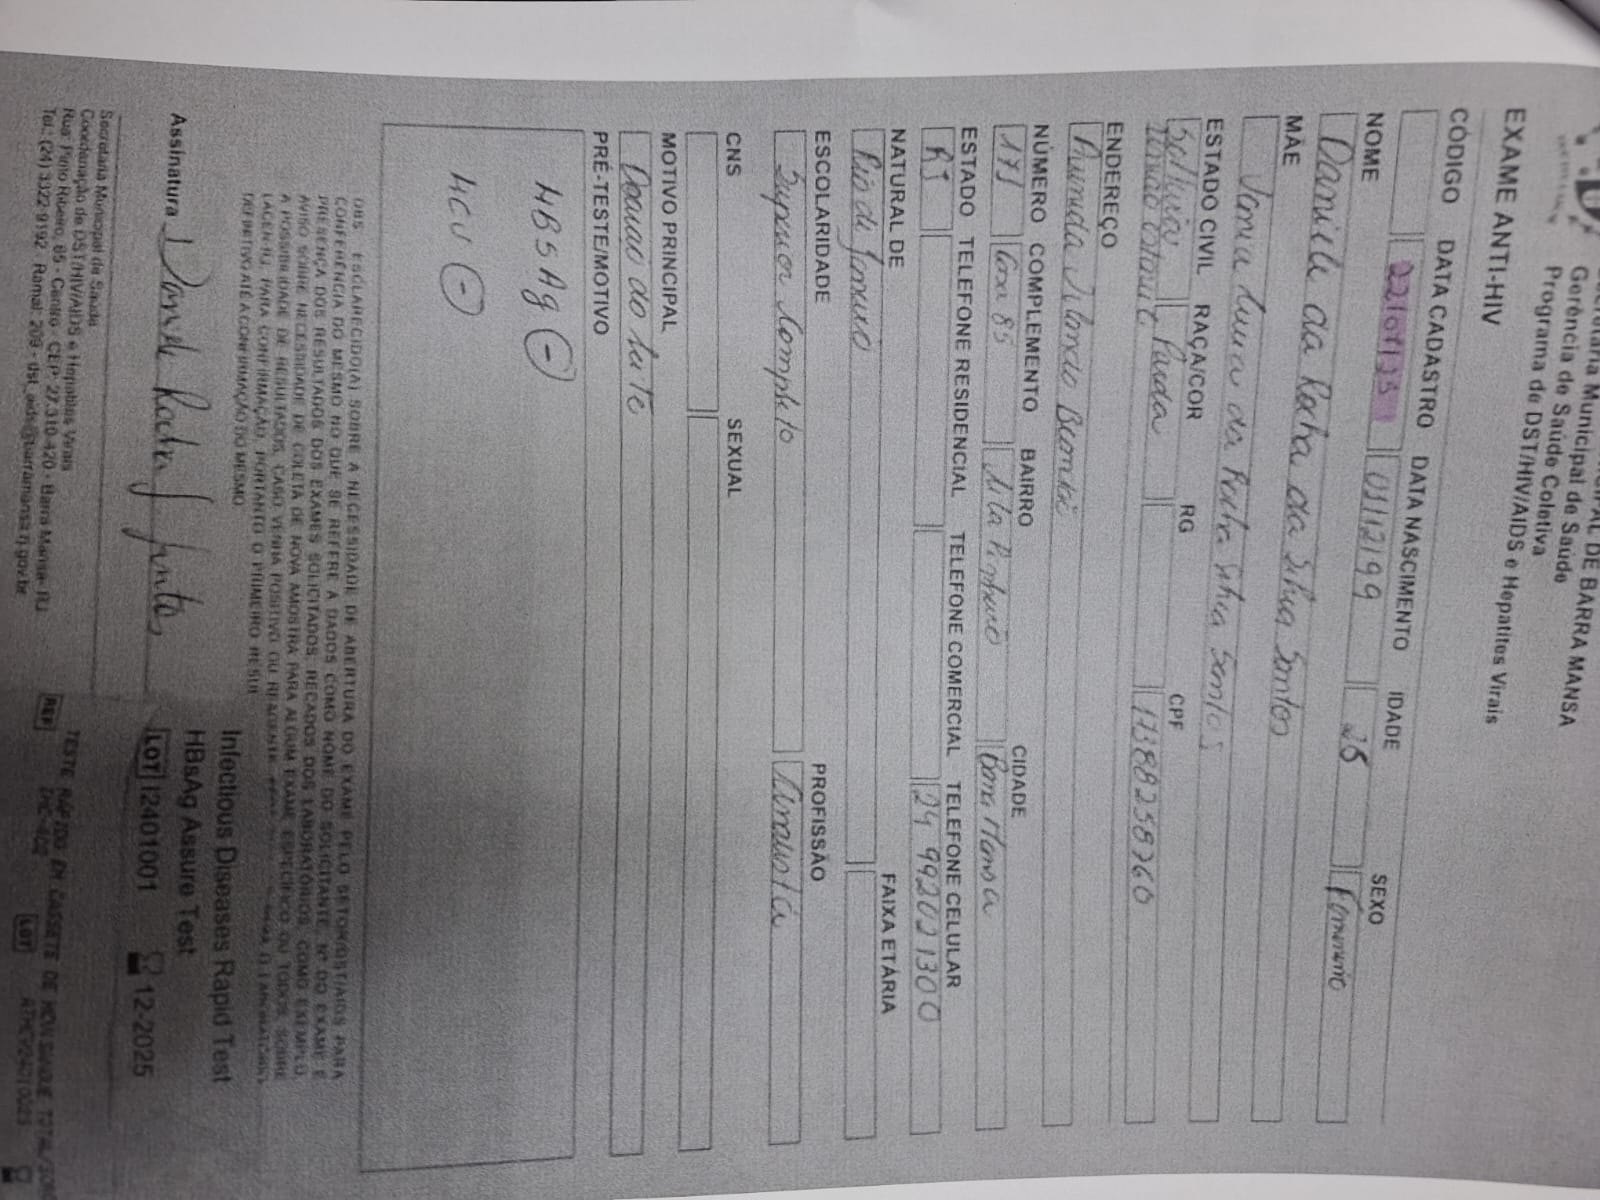 DE BARRA MANSA
Secretaria Municipal de Saúde
Gerência de Saúde Coletiva
Programa de DST/HIV/AIDS e Hepatites Virais
EXAME ANTI-HIV
CÓDIGO DATA CADASTRO DATA NASCIMENTO IDADE SEXO
03/12/99 25 Feminino
NOME
Daniele da Rocha da Silva Santos
MÃE
da Rocha Silva Santos
ESTADO CIVIL RAÇA/COR RG CPF
Solteira Parda 17388258760
ENDEREÇO
NÚMERO COMPLEMENTO BAIRRO CIDADE
173 Casa 85 Barra Mansa
ESTADO TELEFONE RESIDENCIAL TELEFONE COMERCIAL TELEFONE CELULAR
RJ 24 992021300
NATURAL DE FAIXA ETÁRIA
Rio de Janeiro
ESCOLARIDADE PROFISSÃO
Superior Completo
CNS SEXUAL
MOTIVO PRINCIPAL
Doação de leite
PRÉ-TESTE/MOTIVO
HBSAg (-)
HCV (-)
OBS.: ESCLARECIDO(A) SOBRE A NECESSIDADE DE ABERTURA DO EXAME PELO SETOR(DST/AIDS) PARA
CONFERÊNCIA DO MESMO NO QUE SE REFERE A DADOS COMO NOME DO SOLICITANTE, Nº DO EXAME E
PRESENÇA DOS RESULTADOS DOS EXAMES SOLICITADOS, RECADOS DOS LABORATÓRIOS, COMO EXEMPLO,
AVISO SOBRE NECESSIDADE DE COLETA DE NOVA AMOSTRA PARA ALGUM EXAME ESPECÍFICO OU TODOS, SOBRE
A POSSIBILIDADE DE RESULTADOS, CASO VENHA POSITIVO OU REAGENTE
LACEN-RJ, PARA CONFIRMAÇÃO, PORTANTO O PRIMEIRO RESUL
DEFINITIVO ATÉ A CONFIRMAÇÃO DO MESMO
Infectious Diseases Rapid Test
HBsAg Assure Test
LOT I2401001 12-2025
Assinatura Daniele Rocha S Santos
Secretaria Municipal de Saúde
Coordenação de DST/HIV/AIDS e Hepatites Virais
Rua: Pinto Ribeiro, 65 - Centro - CEP: 27.310-420 - Barra Mansa- RJ
Tel.: (24) 3322-9192 Ramal: 209 - dst_aids@barramansa.rj.gov.br
TESTE RÁPIDO EM CASSETE DE HCV SANGUE TOTAL/SORO
REF LOT